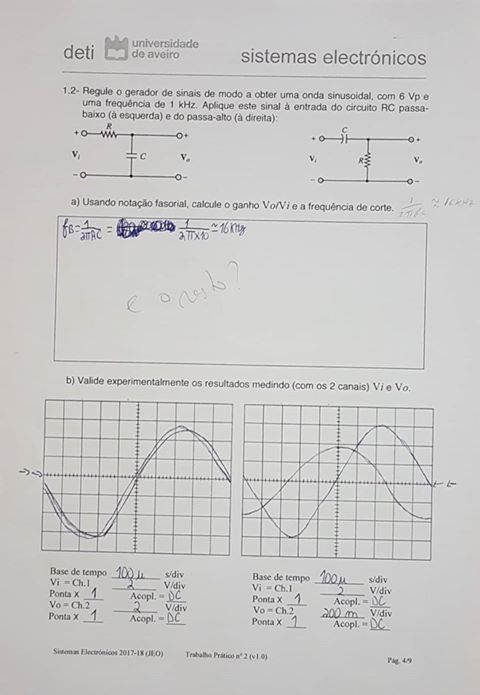 deti universidade de aveiro sistemas electrónicos
1.2- Regule o gerador de sinais de modo a obter uma onda sinusoidal, com 6 Vp e
uma frequência de 1 kHz. Aplique este sinal à entrada do circuito RC passa-
baixo (à esquerda) e do passa-alto (à direita):
R C
+ + + +
Vi C Vo Vi R Vo
- - - -
a) Usando notação fasorial, calcule o ganho Vo/Vi e a frequência de corte. 1/2πRC ≈ 16 kHz
fB = 1/2πRC = 1/2π×10 ≈ 16 kHz
e o resto?
b) Valide experimentalmente os resultados medindo (com os 2 canais) Vi e Vo.
Base de tempo 100 μ s/div
Vi = Ch.1 2 V/div
Ponta X 1 Acopl. = DC
Vo = Ch.2 2 V/div
Ponta X 1 Acopl. = DC
Base de tempo 100 μ s/div
Vi = Ch.1 2 V/div
Ponta X 1 Acopl. = DC
Vo = Ch.2 200 m V/div
Ponta X 1 Acopl. = DC
Sistemas Electrónicos 2017-18 (JEO) Trabalho Prático nº 2 (v1.0) Pág. 4/9